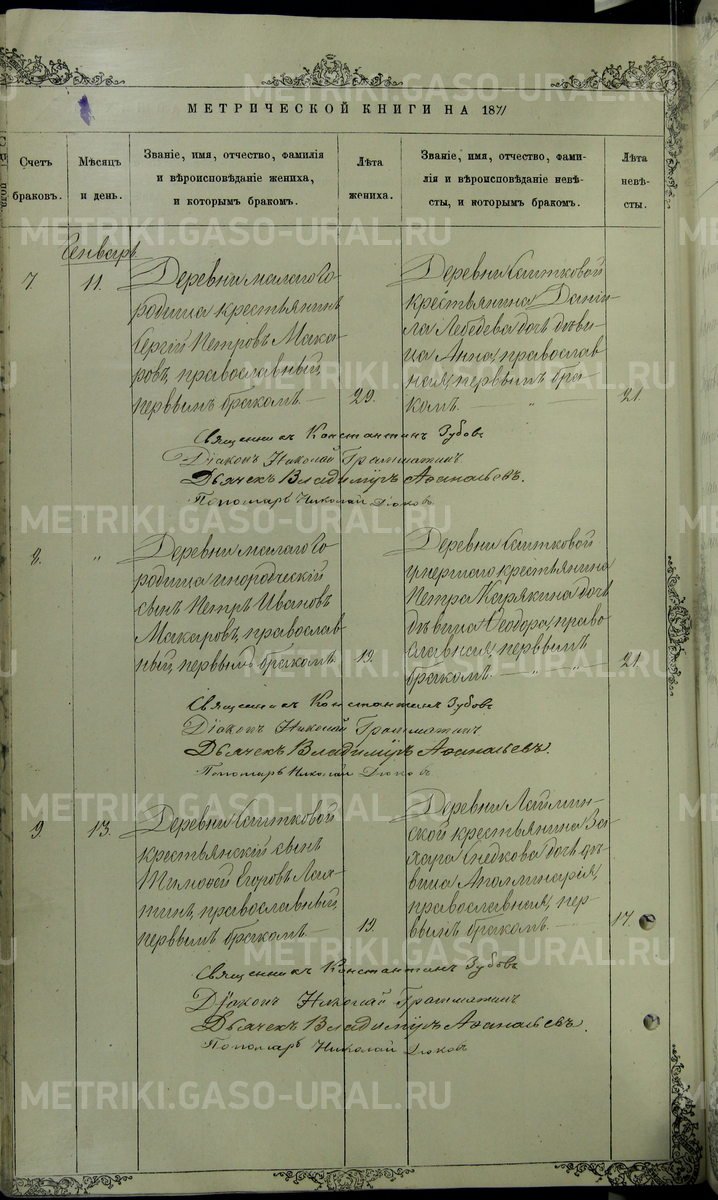 МЕТРИЧЕСКОЙ КНИГИ НА 1871
Счетъ браковъ.
Мѣсяцъ и день.
Званіе, имя, отчество, фамилія
и вѣроисповѣданіе жениха,
и которымъ бракомъ.
Лѣта жениха.
Званіе, имя, отчество, фами-
лія и вѣроисповѣданіе невѣ-
сты, и которымъ бракомъ.
Лѣта невѣ-
сты.
Генварь
7. 11.
Деревни малаго Го-
родища крестьянинъ
Сергій Петровъ Мака-
ровъ, православный,
первымъ бракомъ.
29.
Деревни
крестьянина Дании-
ла Лебедева дочь дѣви-
ца Анна, православ-
ная, первымъ бра-
комъ. "
21.
Священникъ Константинъ Зубовъ
Діаконъ Николай Грамматинъ
Дьячекъ Владиміръ Аѳанасьевъ.
Пономарь Николай Дюковъ
8. "
Деревни малаго Го-
родища
сынъ Петръ Ивановъ
Макаровъ, православ-
ный, первымъ бракомъ.
19.
Деревни
умершаго крестьянина
Петра Карякина дочь
дѣвица Ѳеодора, право-
славная, первымъ
бракомъ. " "
21.
Священникъ Константинъ Зубовъ
Діаконъ Николай Грамматинъ
Дьячекъ Владиміръ Аѳанасьевъ.
Пономарь Николай Дюковъ
9. 13.
Деревни
крестьянскій сынъ
Тимоѳей Егоровъ
православный,
первымъ бракомъ.
19.
Деревни
крестьянина За-
хара дочь дѣ-
вица Аполлинарія,
православная, пер-
вымъ бракомъ.
17.
Священникъ Константинъ Зубовъ
Діаконъ Николай Грамматинъ
Дьячекъ Владиміръ Аѳанасьевъ.
Пономарь Николай Дюковъ
METRIKI.GASO-URAL.RU